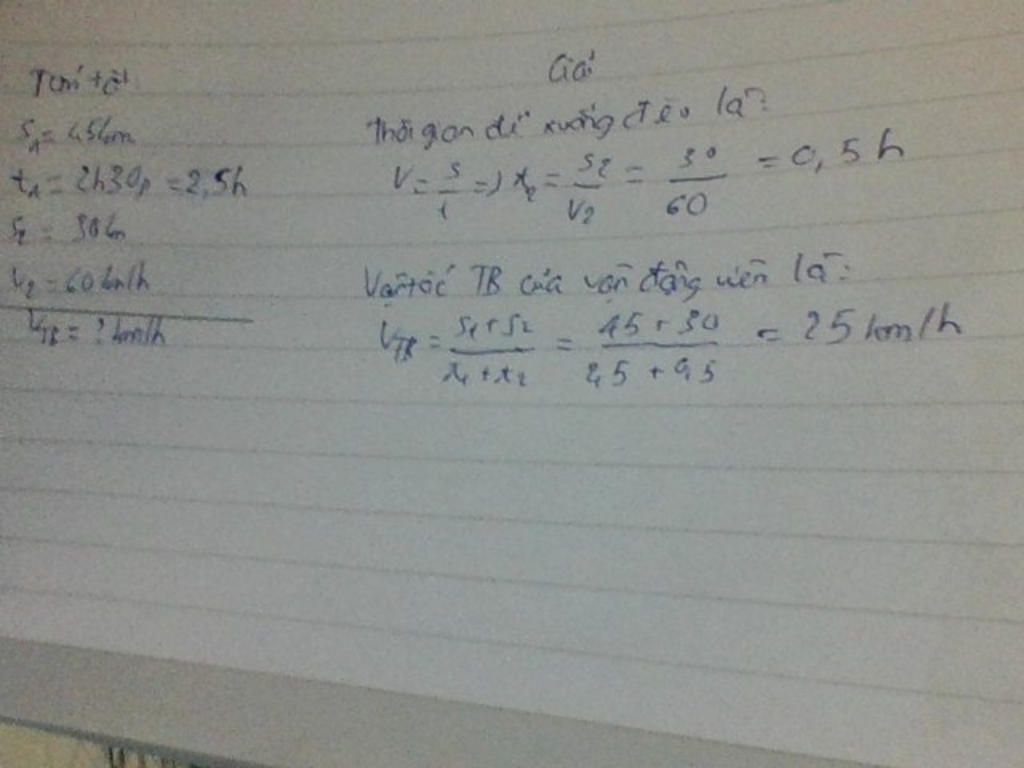 Tóm tắt
S1 = 45km
t1 = 2h30p = 2,5h
S2 = 30km
V2 = 60km/h
VTB = ? km/h
Giải
Thời gian để xuống đèo là:
V = S/t => t2 = S2/V2 = 30/60 = 0,5h
Vận tốc TB của vận động viên là:
VTB = S1+S2/t1+t2 = 45+30/2,5+0,5 = 25km/h